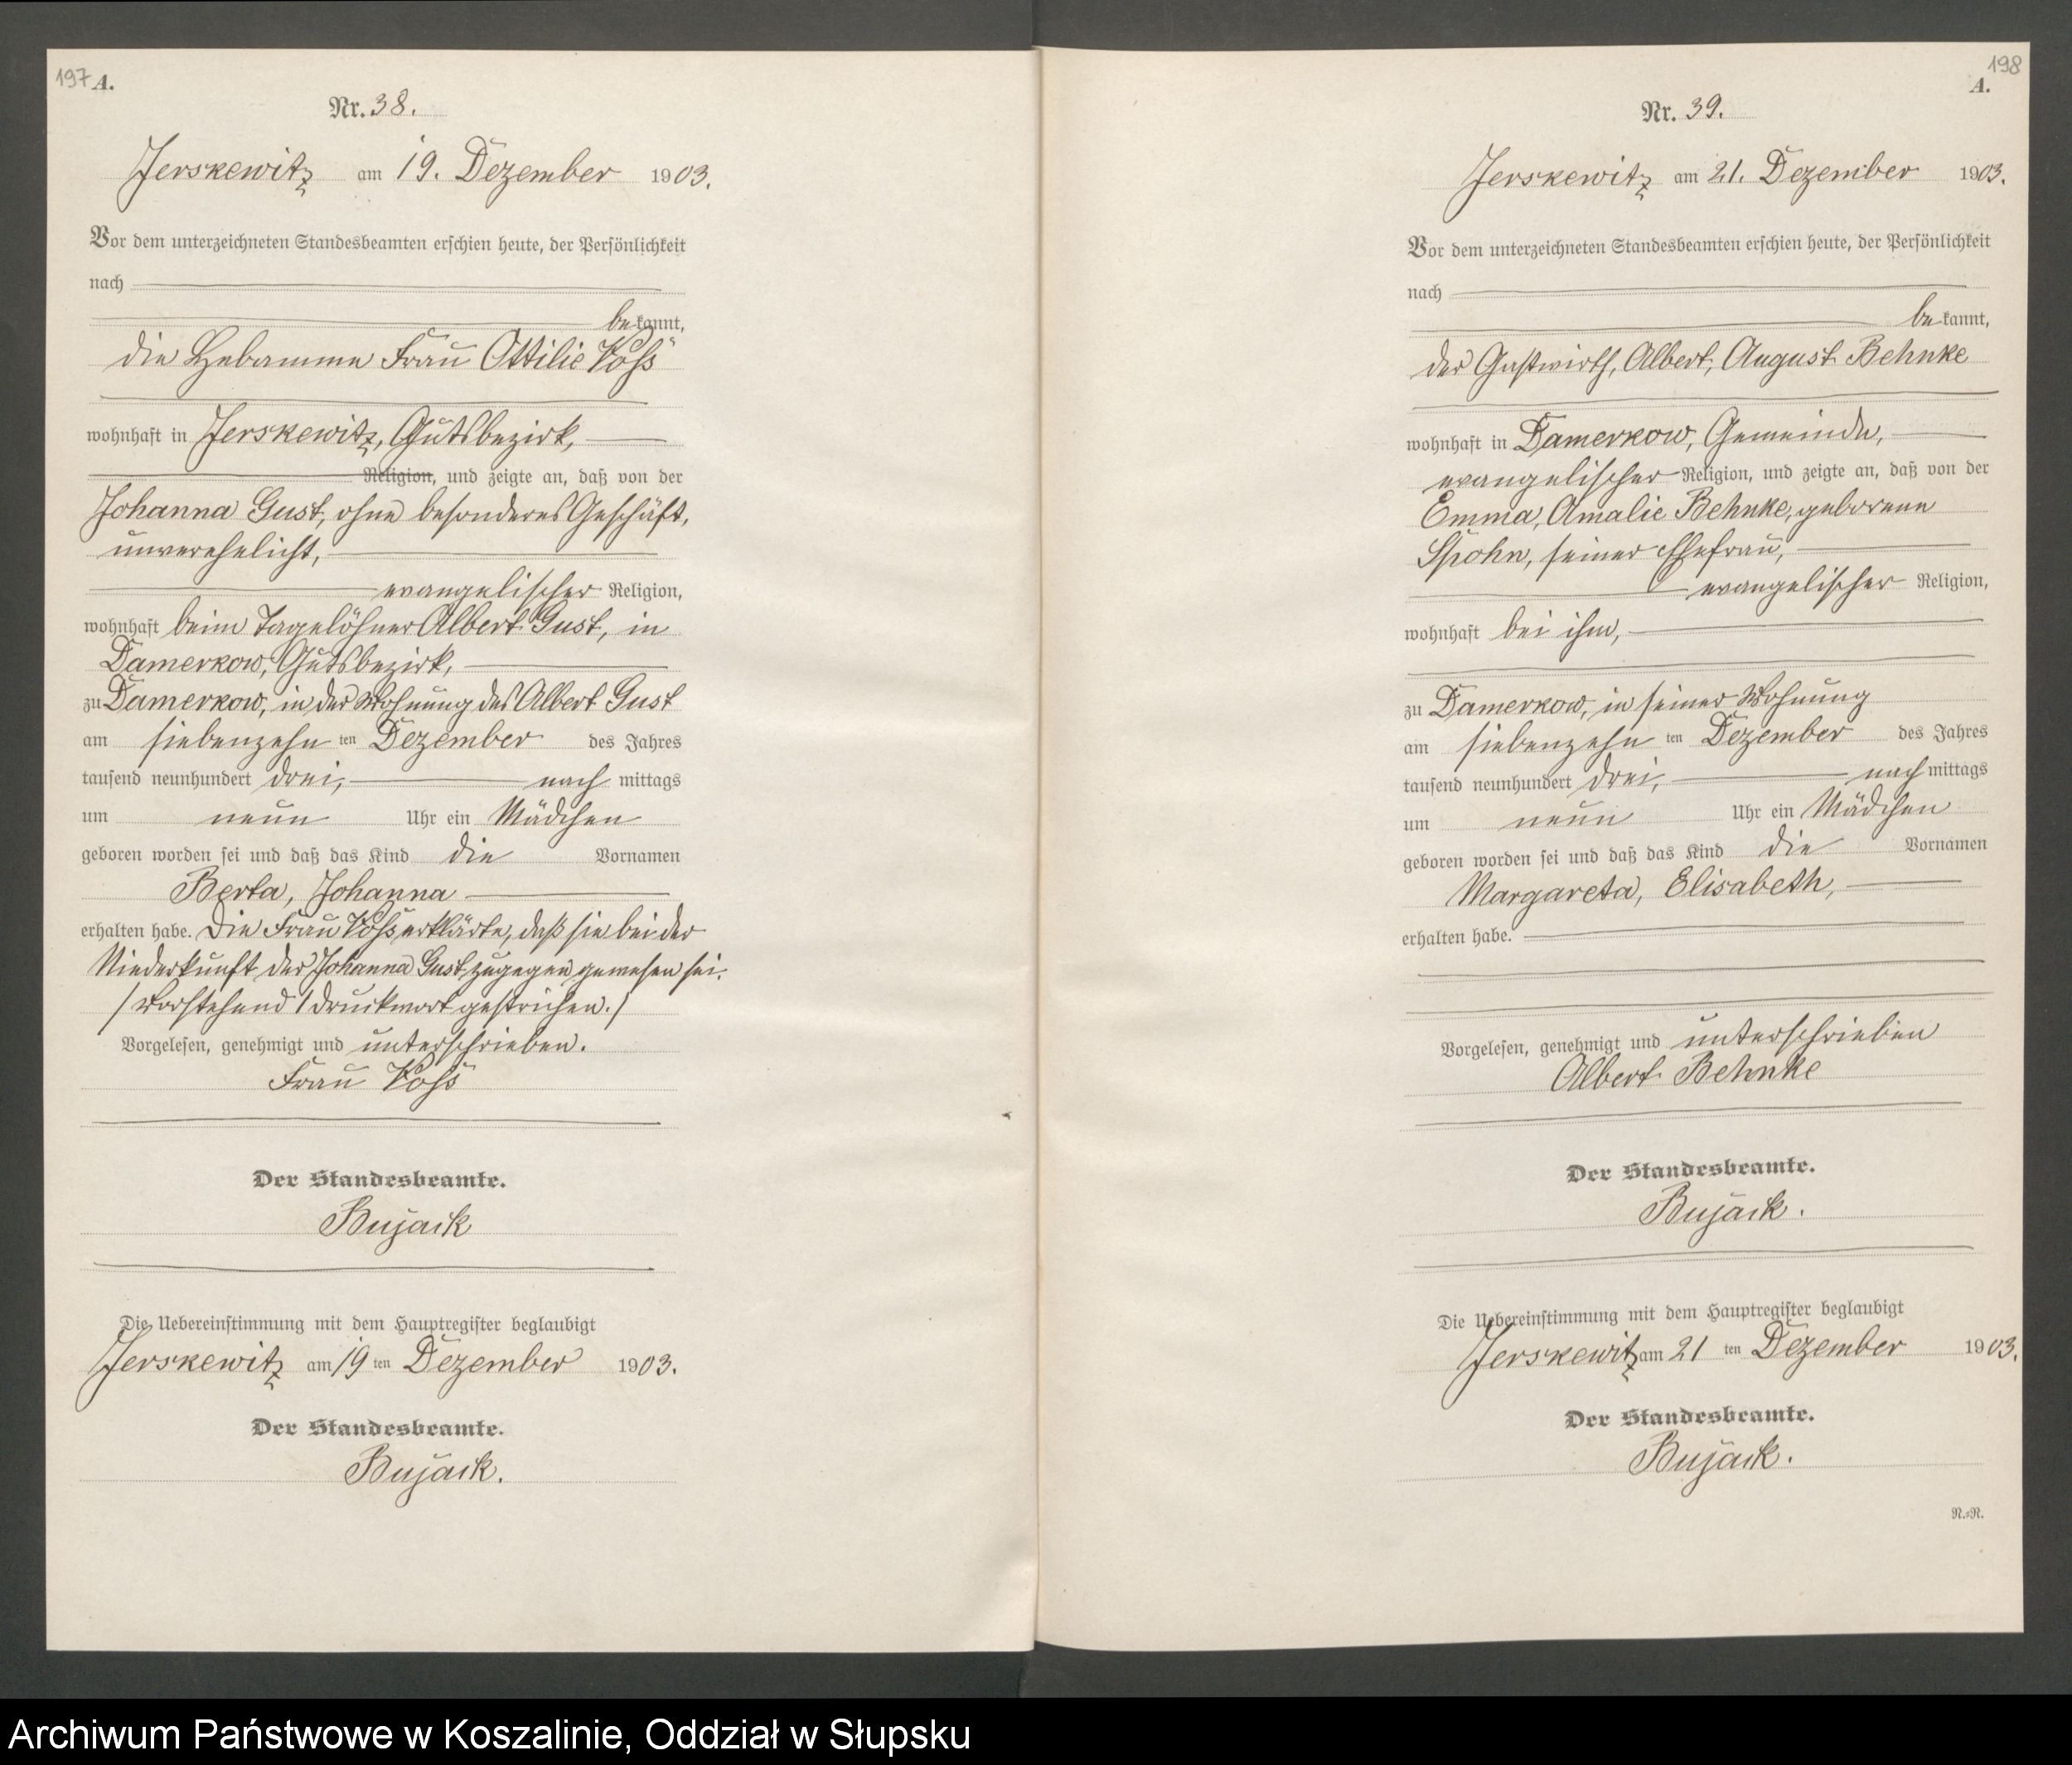 197 A.
Nr. 38.
Jerskewitz am 19. Dezember 1903.
Vor dem unterzeichneten Standesbeamten erschien heute, der Persönlichkeit
nach
bekannt,
die Hebamme Frau Ottilie Voß
wohnhaft in Jerskewitz, Gutsbezirk,
Religion, und zeigte an, daß von der
Johanna Gust, ohne besonderes Geschäft,
unverehelicht,
evangelischer Religion,
wohnhaft beim Tagelöhner Albert Gust, in
Damerkow, Gutsbezirk,
zu Damerkow, in der Wohnung des Albert Gust
am siebenzehn ten Dezember des Jahres
tausend neunhundert drei, nach mittags
um neun Uhr ein Mädchen
geboren worden sei und daß das Kind die Vornamen
Berta, Johanna
erhalten habe. Die Frau Voß erklärte, daß sie bei der
Niederkunft der Johanna Gust zugegen gewesen sei.
/Vorstehend 1 Druckwort gestrichen./
Vorgelesen, genehmigt und unterschrieben.
Frau Voß
Der Standesbeamte.
Bujack
Die Uebereinstimmung mit dem Hauptregister beglaubigt
Jerskewitz am 19 ten Dezember 1903.
Der Standesbeamte.
Bujack.
198
A.
Nr. 39.
Jerskewitz am 21. Dezember 1903.
Vor dem unterzeichneten Standesbeamten erschien heute, der Persönlichkeit
nach
bekannt,
der Gastwirth, Albert, August Behnke
wohnhaft in Damerkow, Gemeinde,
evangelischer Religion, und zeigte an, daß von der
Emma, Amalie Behnke, geborene
Spohn, seiner Ehefrau,
evangelischer Religion,
wohnhaft bei ihm,
zu Damerkow, in seiner Wohnung
am siebenzehn ten Dezember des Jahres
tausend neunhundert drei, nach mittags
um neun Uhr ein Mädchen
geboren worden sei und daß das Kind die Vornamen
Margareta, Elisabeth,
erhalten habe.
Vorgelesen, genehmigt und unterschrieben
Albert Behnke
Der Standesbeamte.
Bujack.
Die Uebereinstimmung mit dem Hauptregister beglaubigt
Jerskewitz am 21 ten Dezember 1903.
Der Standesbeamte.
Bujack.
N.=R.
Archiwum Państwowe w Koszalinie, Oddział w Słupsku